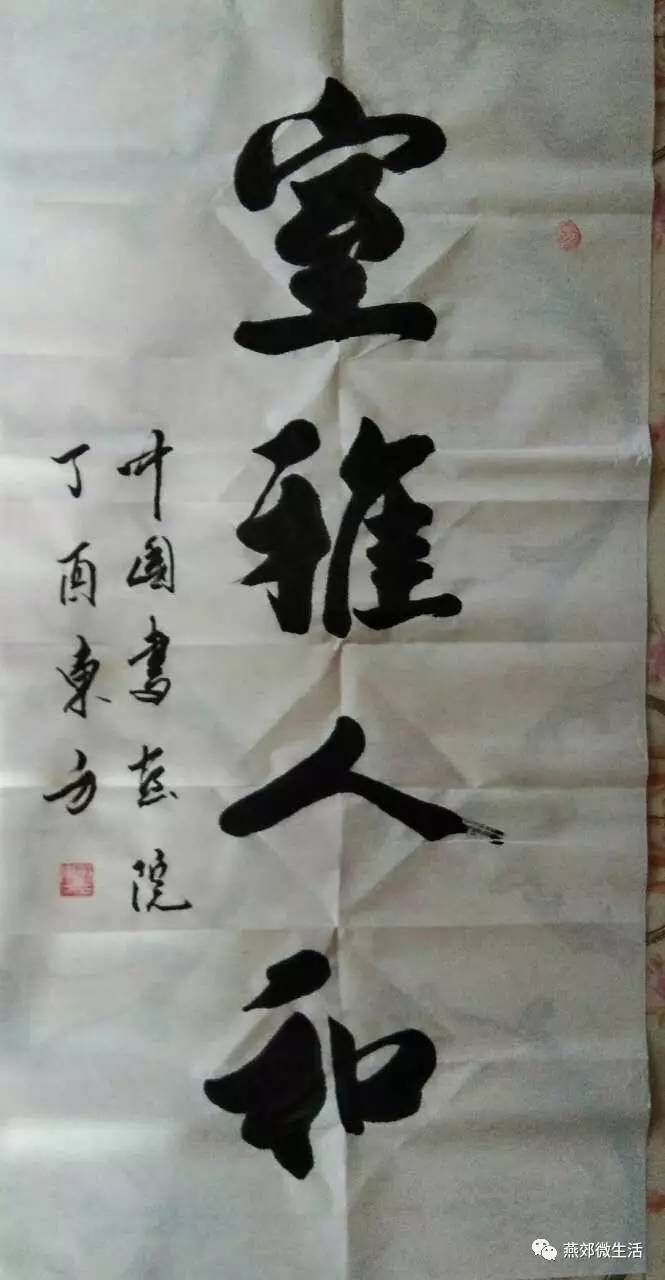 室雅人和
中国书画院
丁酉东方
燕郊微生活